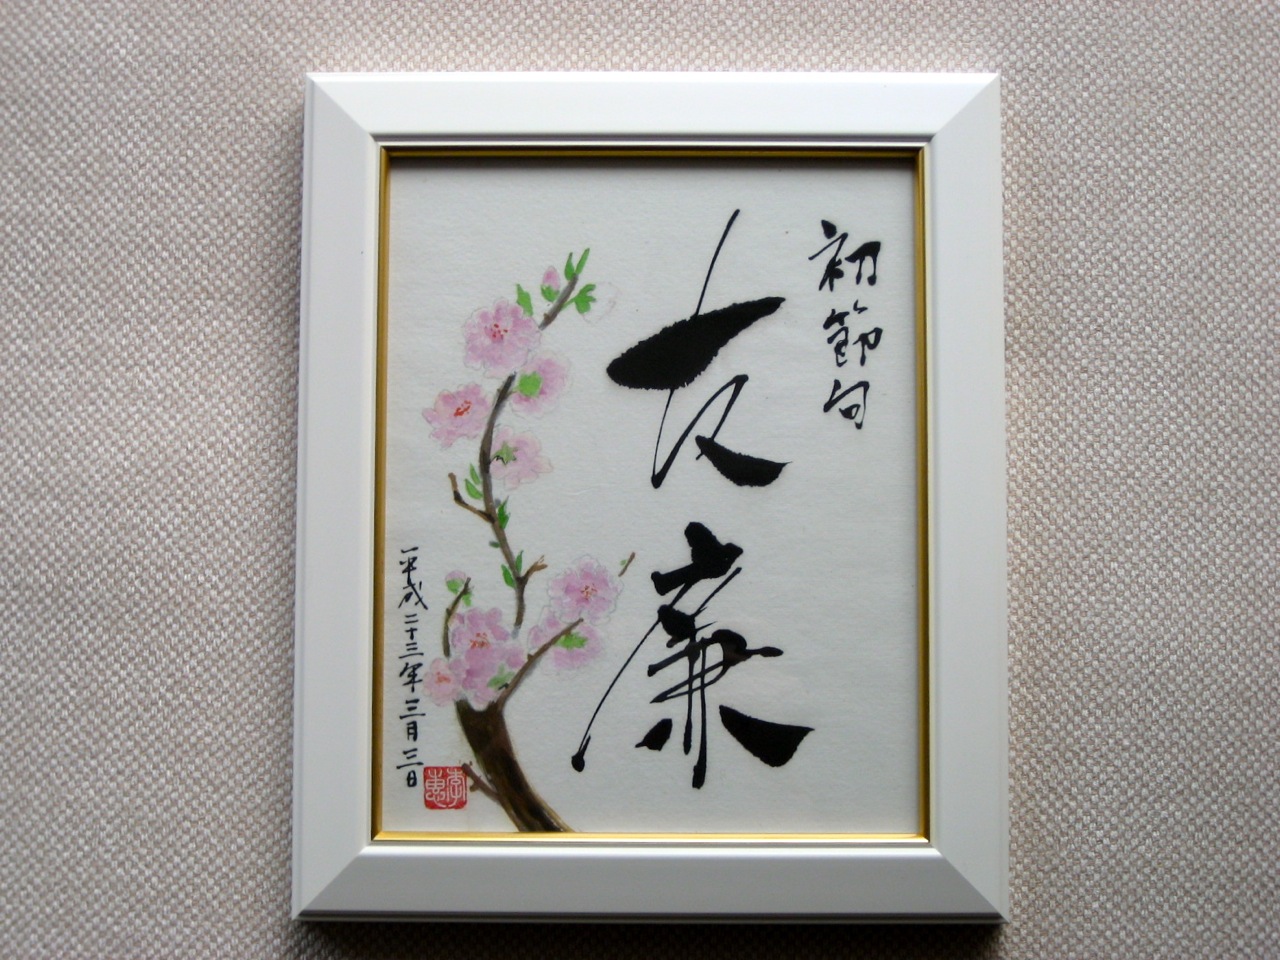 初節句
友廉
平成二十三年三月三日